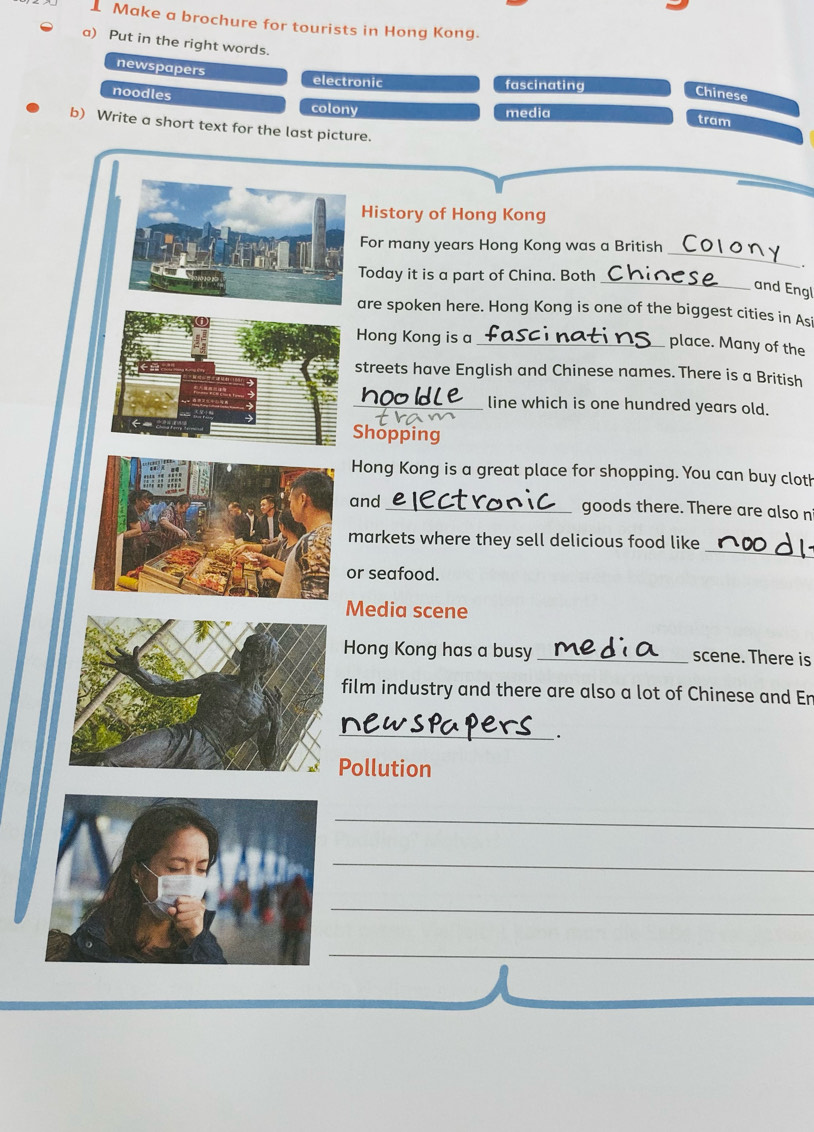 1 Make a brochure for tourists in Hong Kong.
a) Put in the right words.
newspapers electronic fascinating Chinese
noodles colony media tram
b) Write a short text for the last picture.
History of Hong Kong
For many years Hong Kong was a British colony.
Today it is a part of China. Both Chinese and Engl
are spoken here. Hong Kong is one of the biggest cities in Asi
Hong Kong is a fascinating place. Many of the
streets have English and Chinese names. There is a British
nooldle line which is one hundred years old.
tram
Shopping
Hong Kong is a great place for shopping. You can buy cloth
and electronic goods there. There are also ni
markets where they sell delicious food like noodl
or seafood.
Media scene
Hong Kong has a busy media scene. There is
film industry and there are also a lot of Chinese and En
newspapers.
Pollution